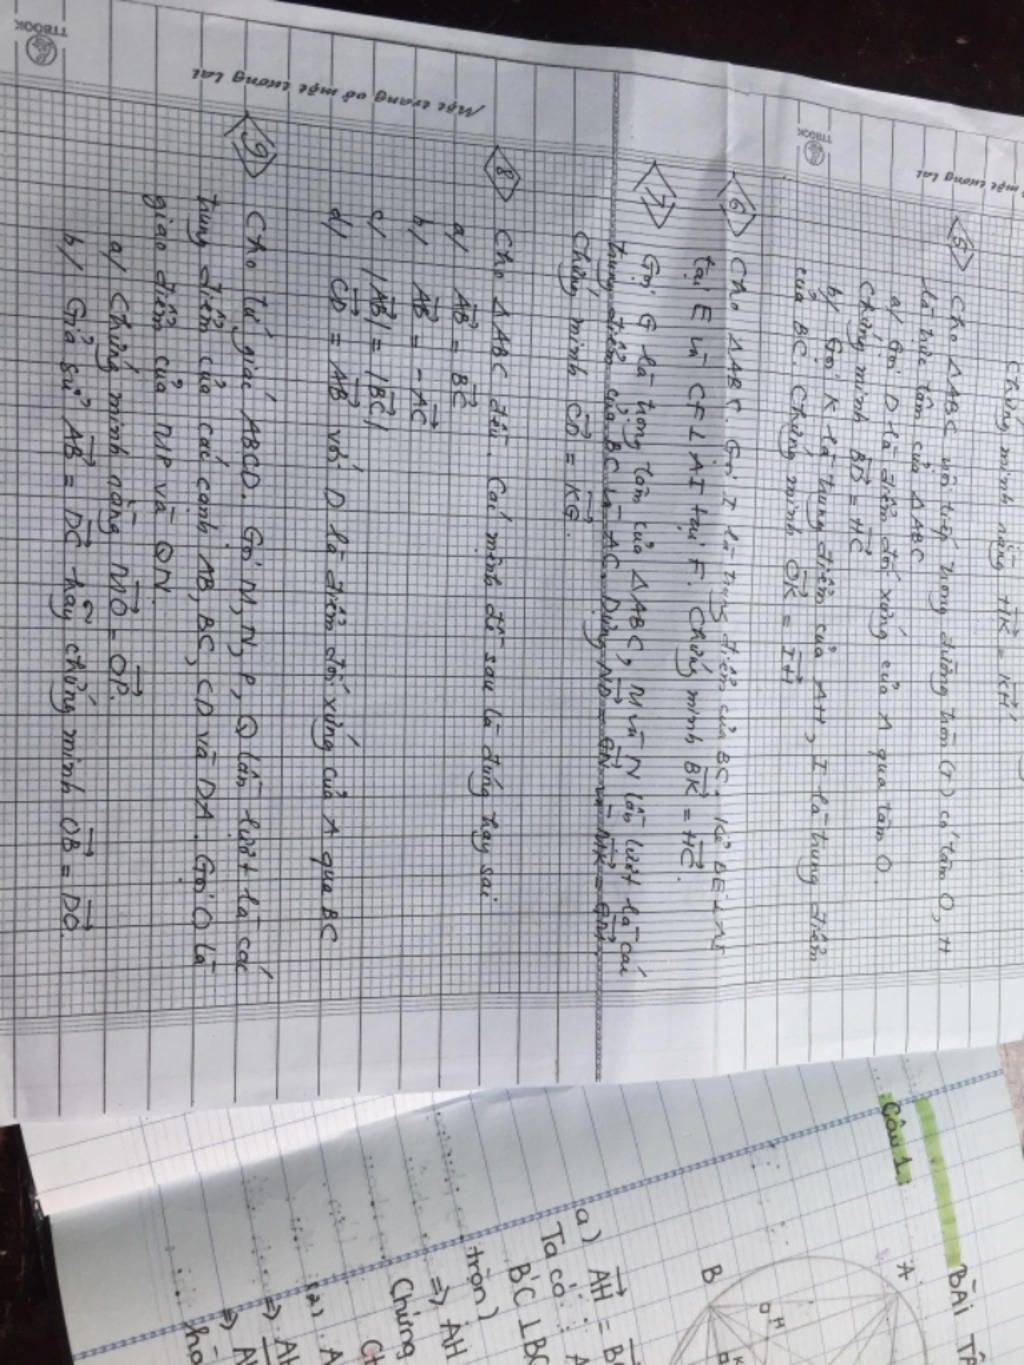 Chứng minh rằng
một tương lai
TTBOOK
5 Cho ΔABC nội tiếp trong đường tròn (T) có tâm O, H
là trực tâm của ΔABC
a/ Gọi D là điểm đối xứng của A qua tâm O.
Chứng minh BD = HC
b/ Gọi K là trung điểm của AH, I là trung điểm
của BC. Chứng minh OK = IH
6 Cho ΔABC. Gọi I là trung điểm của BC. Kẻ BE ⊥ AI
tại E và CF ⊥ AI tại F. Chứng minh
7 Gọi G là trọng tâm của ΔABC, M và N lần lượt là các
trung điểm của BC và AC. Dựng
Chứng minh CD = KG.
8 Cho ΔABC đều. Các mệnh đề sau là đúng hay sai
a/ AB = BC
b/ AB = -AC
c/ |AB| = |BC|
d/ CD = AB với D là điểm đối xứng của A qua BC
9 Cho tứ giác ABCD. Gọi M, N, P, Q lần lượt là các
trung điểm của các cạnh AB, BC, CD và DA. Gọi O là
giao điểm của MP và QN.
a/ Chứng minh rằng MO = OP.
b/ Giả sử AB = DC hãy chứng minh OB = DO.
Một trang vở một tương lai
TTBOOK
BÀI
Câu 1.
A
B
H
K
a) AH =
Ta có:
B'C ⊥ BC
tròn)
=> AH
Chứng
(2)